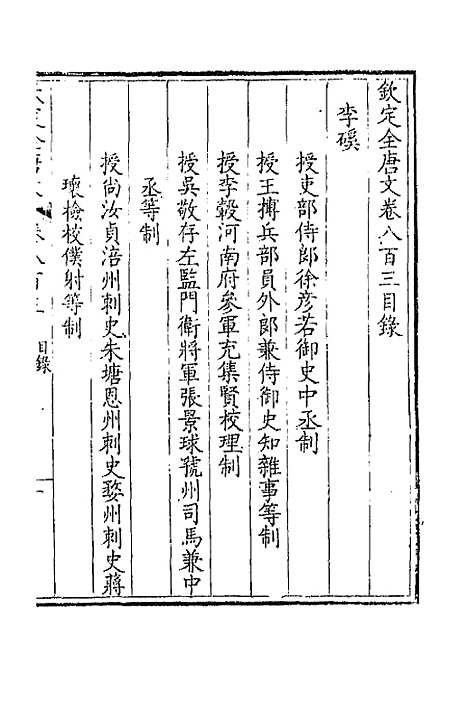 欽定全唐文卷八百三目錄
李磎
授吏部侍郎徐彥若御史中丞制
授王搏兵部員外郎兼侍御史知雜事等制
授李瑴河南府參軍充集賢校理制
授吳敬存左監門衛將軍張景球虢州司馬兼中
丞等制
授尚汝貞涪州刺史朱塘恩州刺史婺州刺史蔣
瓌檢校僕射等制
目錄